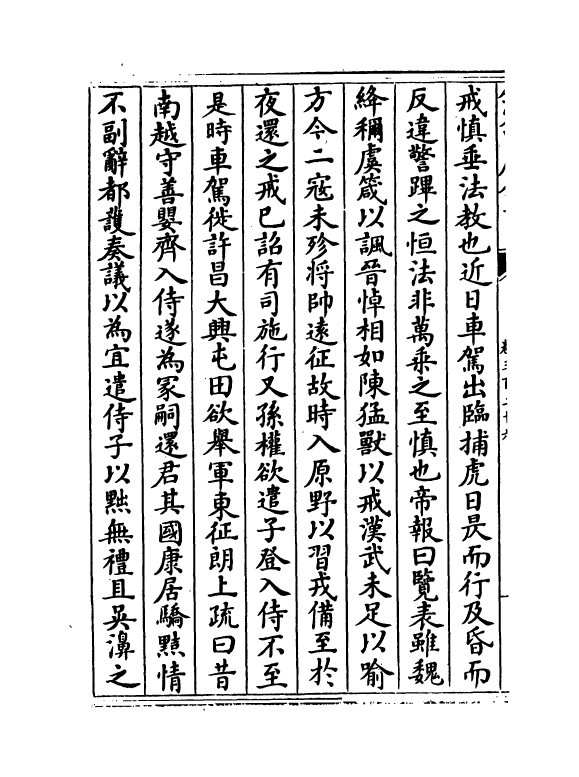 戒慎垂法教也近日車駕出臨捕虎日昃而行及昏而
反違警蹕之恒法非萬乘之至慎也帝報曰覽表雖魏
絳稱虞箴以諷晉悼相如陳猛獸以戒漢武未足以喻
方今二寇未殄将帥遠征故時入原野以習戎備至於
夜還之戒已詔有司施行又孫權欲遣子登入侍不至
是時車駕徙許昌大興屯田欲舉軍東征朗上疏曰昔
南越守善嬰齊入侍遂為冡嗣還君其國康居驕黠情
不副辭都護奏議以為宜遣侍子以黜無禮且吳濞之